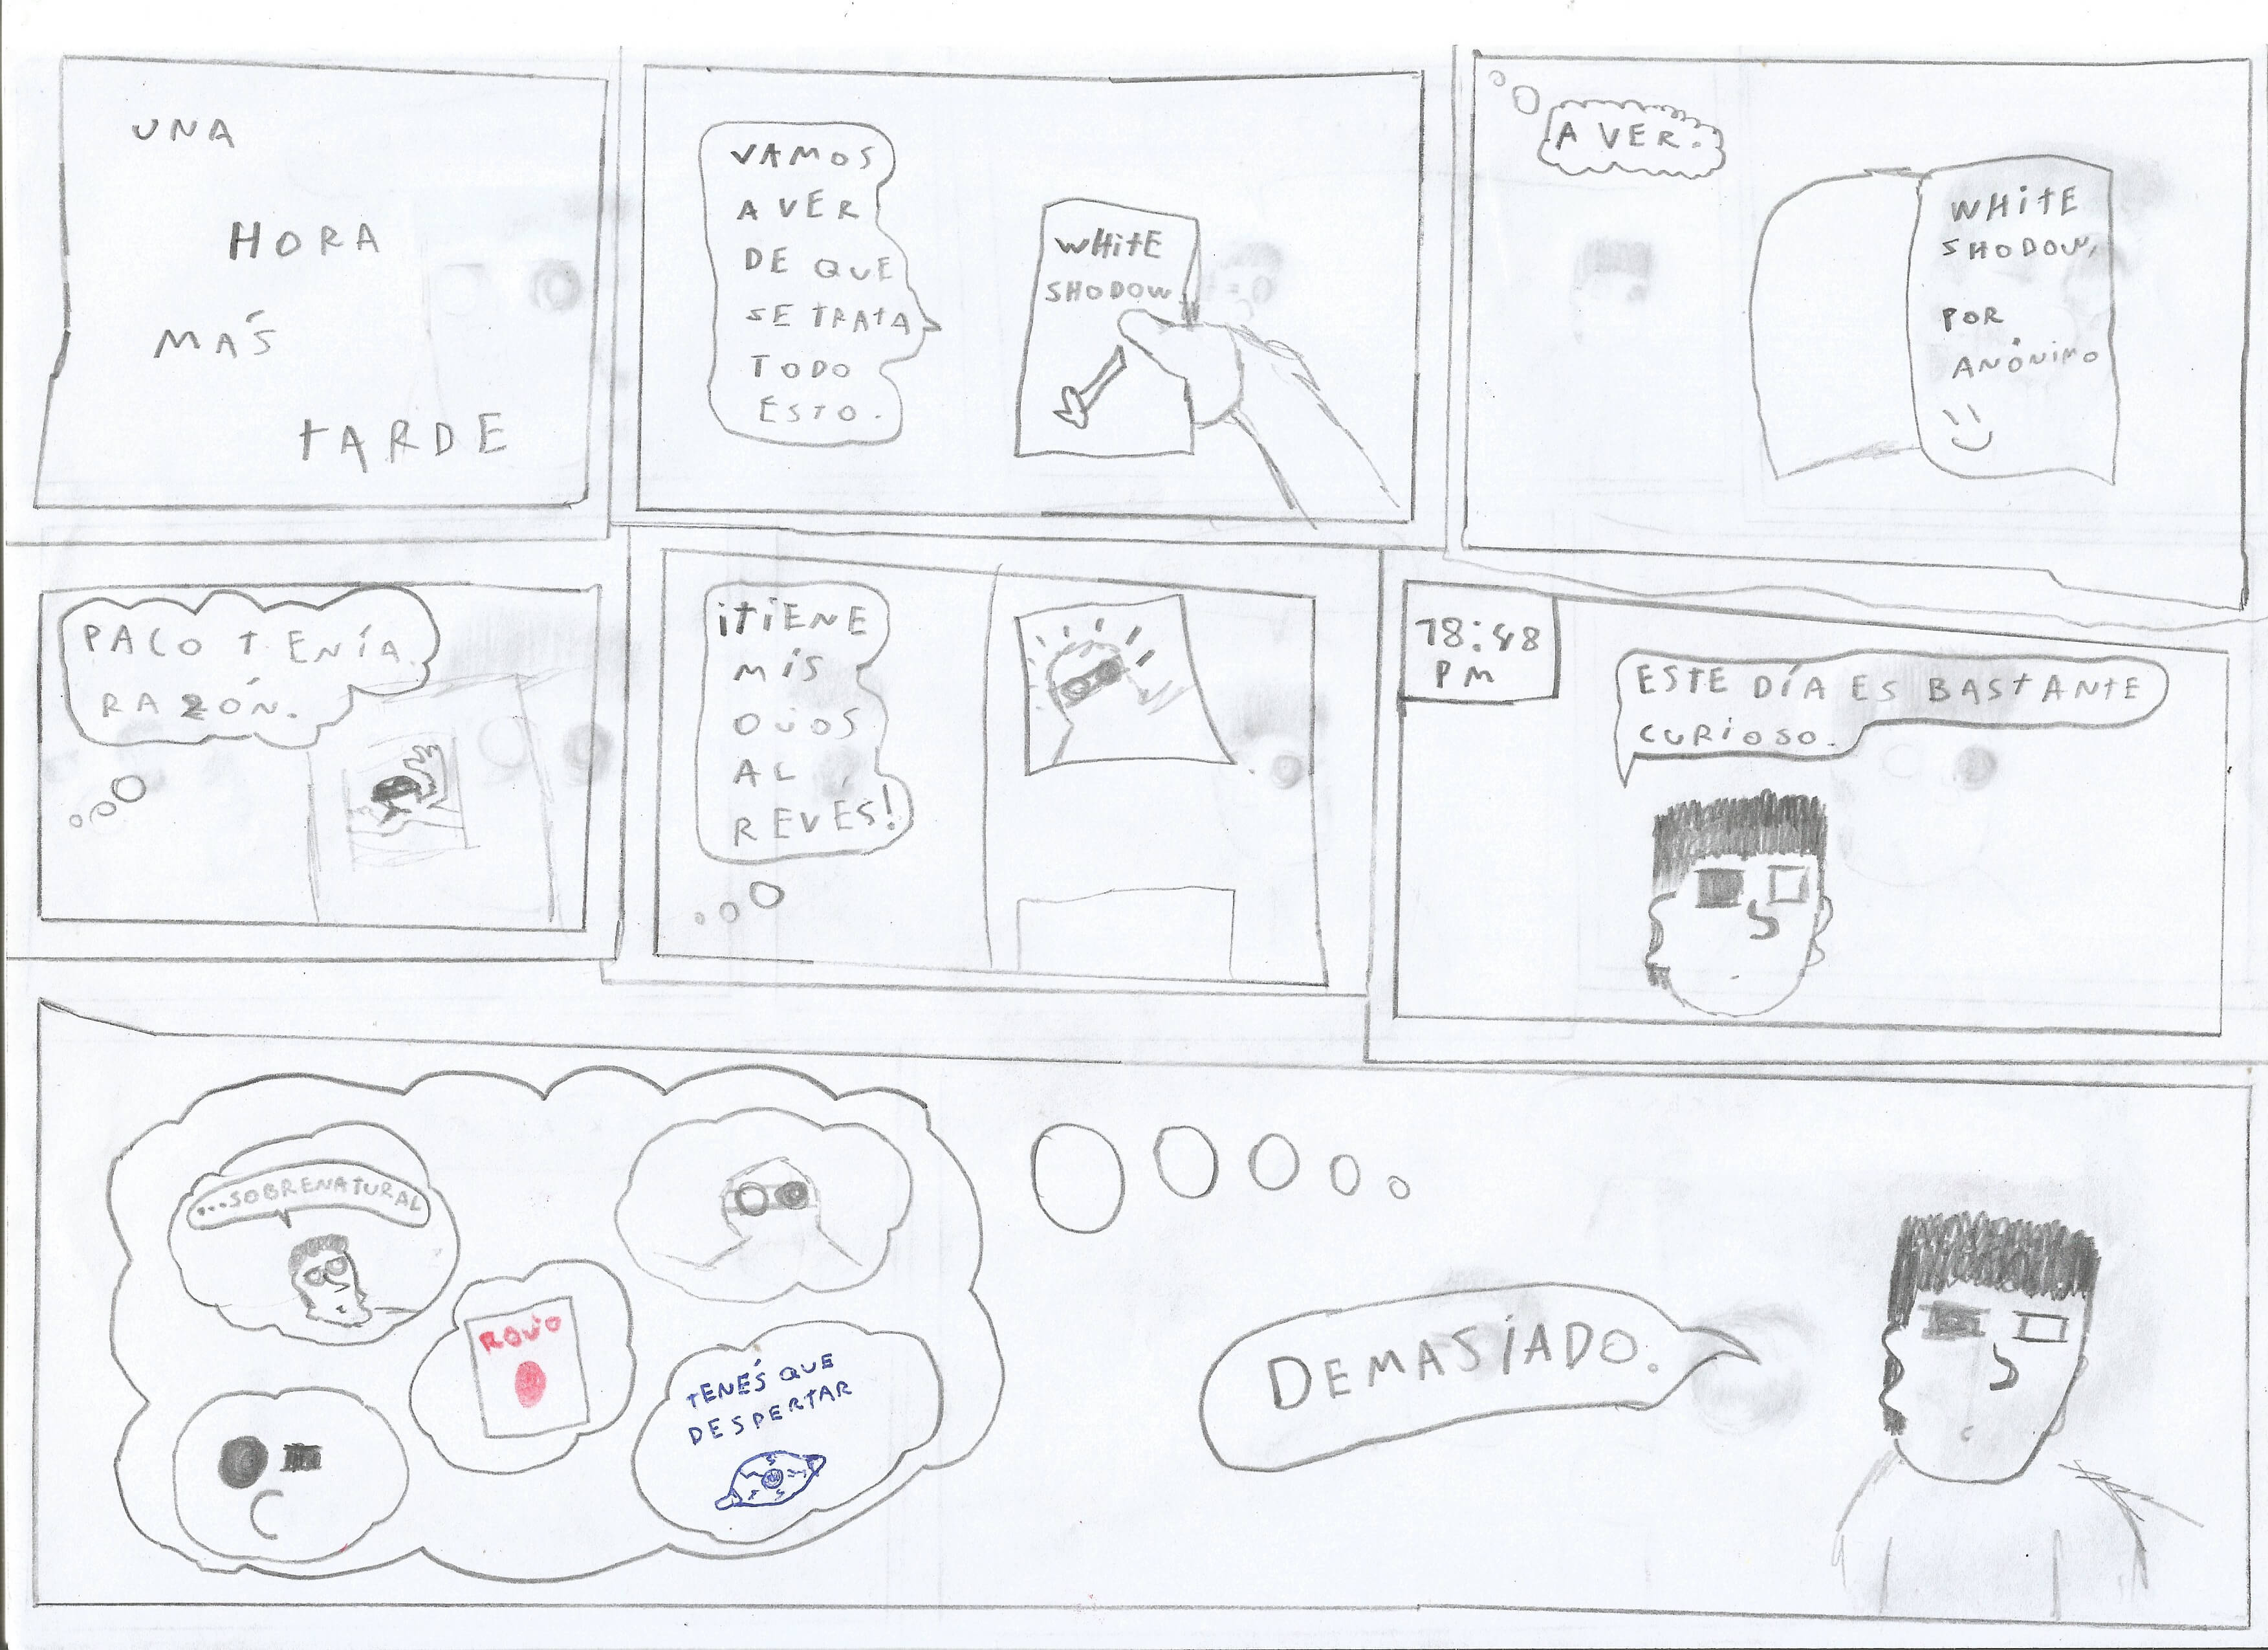 UNA
HORA
MÁS
TARDE
VAMOS
A VER
DE QUE
SE TRATA
TODO
ESTO.
WHITE
SHODOW
A VER.
WHITE
SHODOW,
POR
ANÓNIMO
PACO TENÍA
RAZÓN.
¡TIENE
MIS
OJOS
AL
REVÉS!
18:48
PM
ESTE DÍA ES BASTANTE
CURIOSO.
...SOBRENATURAL
ROJO
TENÉS QUE
DESPERTAR
DEMASIADO.